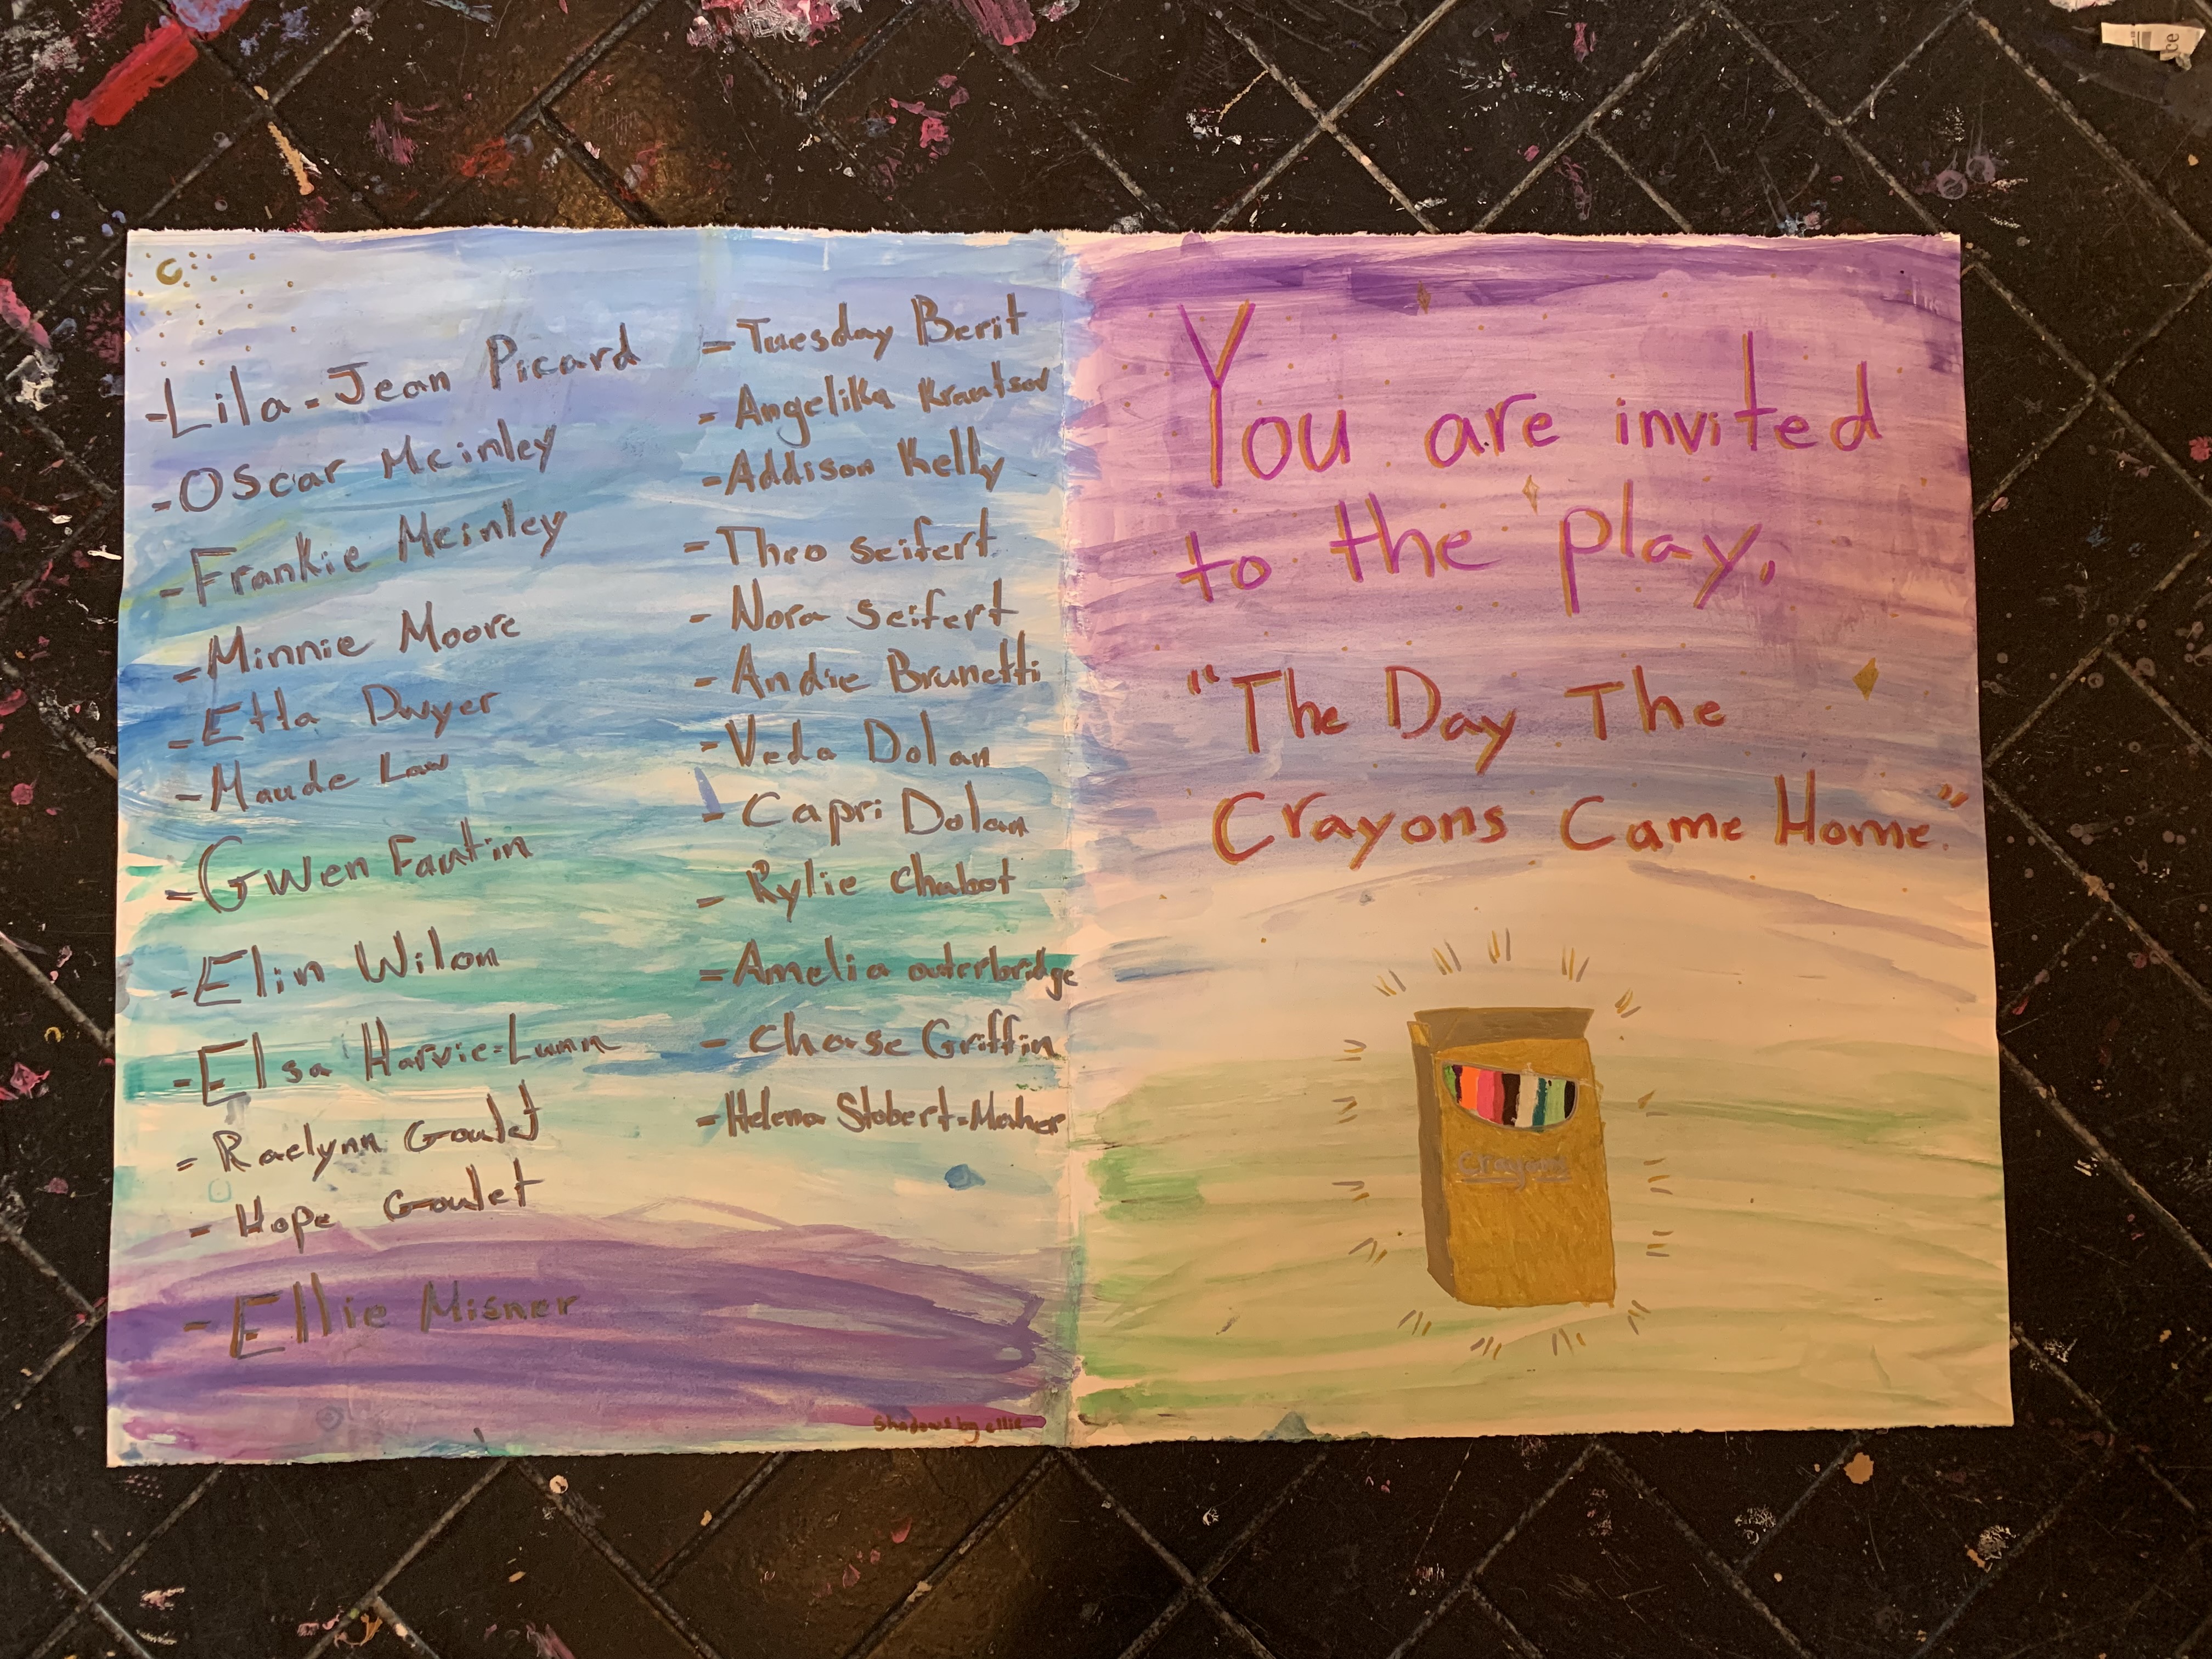 -Lila-Jean Picard
-Oscar Mcinley
-Frankie Mcinley
-Minnie Moore
-Etta Dwyer
-Maude Law
-Gwen Fantin
-Elin Wilon
-Elsa Harvie-Lunn
-Raelynn Goulet
-Hope Goulet
-Ellie Misner
-Tuesday Berit
-Angelika Krautsov
-Addison Kelly
-Theo Seifert
-Nora Seifert
-Andie Brunetti
-Veda Dolan
-Capri Dolan
-Rylie Chabot
-Amelia outerbridge
-Chase Griffin
-Helena Stobert-Maher
Shadows by ellie
You are invited
to the play,
"The Day The
Crayons Came Home."
Crayons